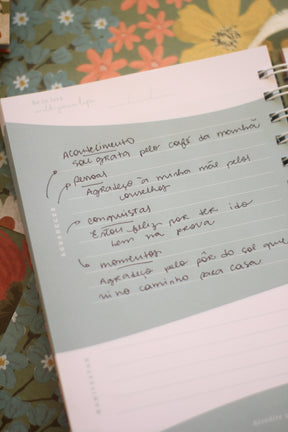 with your life
Acontecimento
sou grata pelo café da manhã
pessoas
Agradeço a minha mãe pelos
conselhos
conquistas
Estou feliz por ter ido
bem na prova
momentos
Agradeço pelo pôr do sol que
vi no caminho para casa